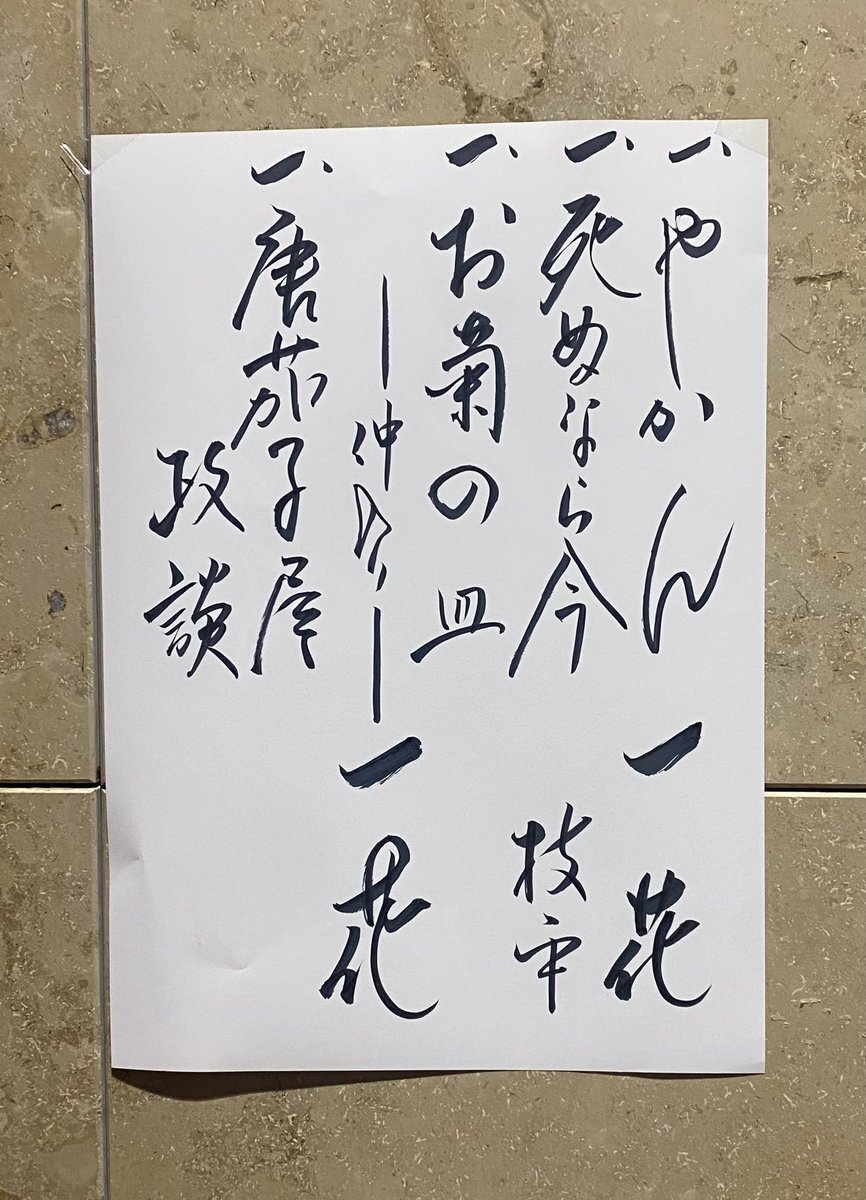 一、やかん 一花
一、死ぬなら今 枝平
一、お菊の皿
―仲入り― 一花
一、唐茄子屋
政談